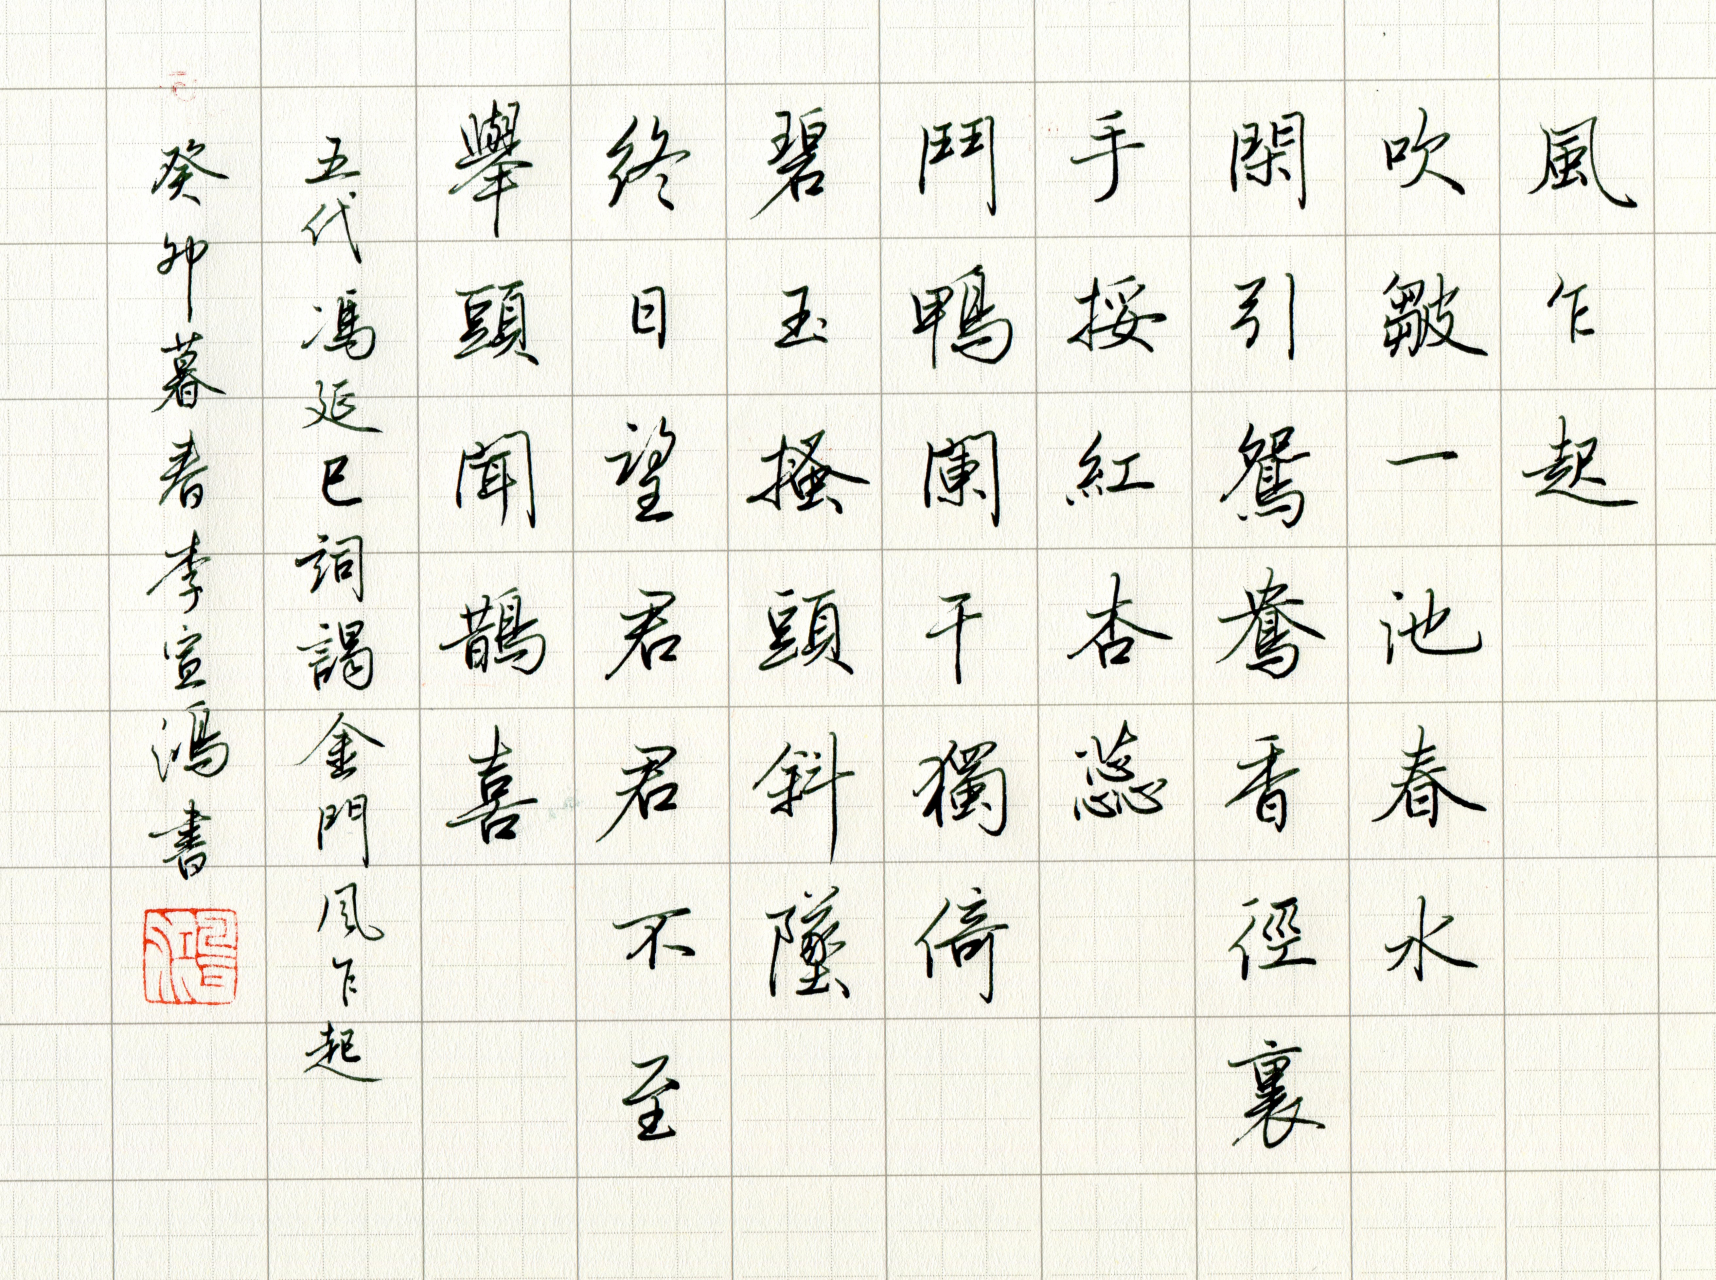 風乍起
吹皺一池春水
閑引鴛鴦香徑裏
手挼紅杏蕊
鬥鴨闌干獨倚
碧玉搔頭斜墜
終日望君君不至
舉頭聞鵲喜
五代馮延巳詞謁金門風乍起
癸卯暮春李宣鴻書